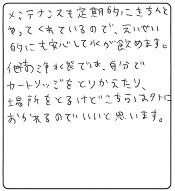 メンテナンスも定期的にきちんと
やってくれているので、えいせい
的にも安心して水が飲めます。
他の浄水器では、自分で
カートリッジをとりかえたり、
場所をとるけどこちらは外に
おかれるのでいいと思います。